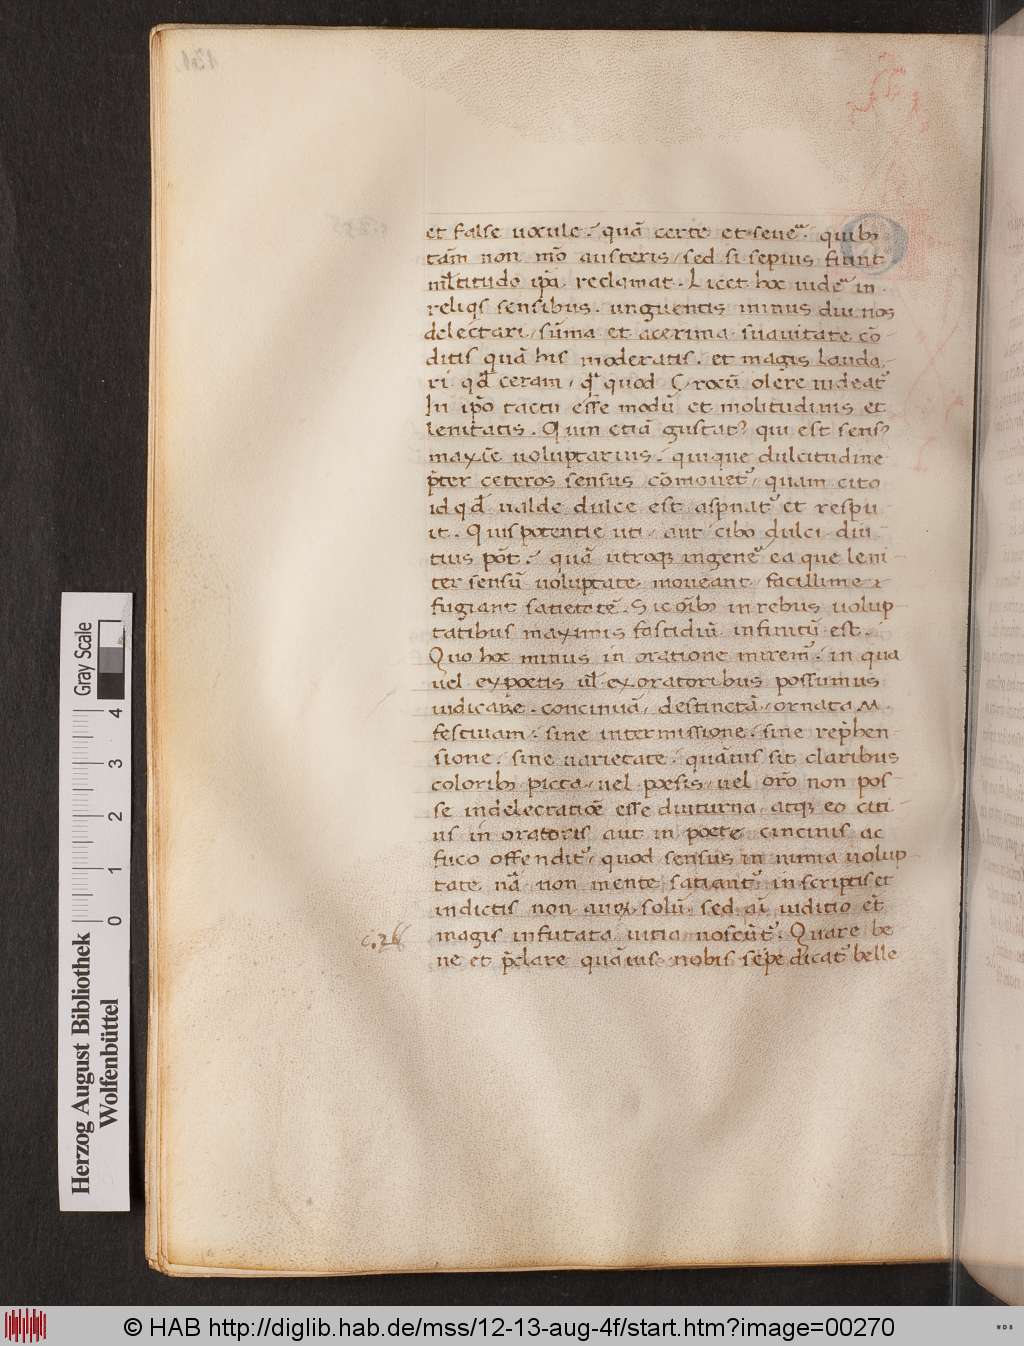 et false uocule. quā certe et seueᵉ. quibꝫ
tam̄ non mō austeris, sed si sepius fiunt
ml̄titudo ip̄a reclamat. Licet hoc uideᵉ in
reliqs̄ sensibus. unguentis minus diu nos
delectari, sūma et acerima suauitate cō-
ditis quā his moderatis. et magis lauda
ri qđ ceram, qᵃ quod Crocū olere uideat᷑
In ip̄o tactu esse modū et molitudinis et
lenitatis. Quin etiā gustatꝰ qui est sensꝰ
maxīe uoluptarius. quique dulcitudine
p̄ter ceteros sensus cōmouet᷑, quam cito
id qđ ualde dulce est aspnat᷑ et respu
it. Quis potentie uti, aut cibo dulci diu
tius pōt. quā utroqꝫ in geneᵉ ea que leni
ter sensū uoluptate moueant, facillime ⁊
fugiant satietatē. Sic oībꝫ in rebus uolup
tatibus maximis fastidiū infinitū est.
Quo hoc minus in oratione mirem᷑. in qua
uel ex poetis ul̄ ex oratoribus possumus
iudicare. concinnā, destinctā, ornatam.
festiuam. sine intermissione. sine reprehen-
sione. sine uarietate. quāuis sit claribus
coloribꝫ picta, uel poesis, uel orō non pos
se in delectatiōe esse diuturna, atqꝫ eo citi
us in oratoris aut in poete cincinis ac
fuco offendit᷑, quod sensus in nimia uolup
tate nā non mente satiant᷑ in scriptis et
in dictis non auꝝ solū sed aī iuditio et
magis infucata uitia noscūt᷑. Quare be
ne et p̄clare quāuis nobis sepe dicat᷑ belle
c. 26
Herzog August Bibliothek
Wolfenbüttel
0 1 2 3 4
Gray Scale
© HAB http://diglib.hab.de/mss/12-13-aug-4f/start.htm?image=00270